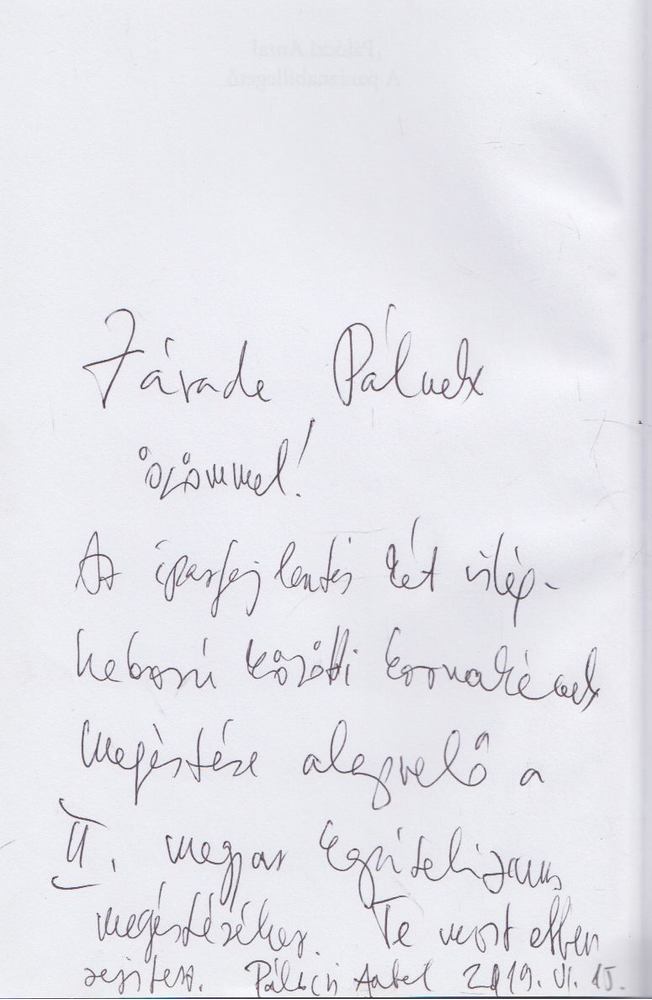 Závada Pálnak
örömmel!
Az iparfejlesztés két világ-
háború közötti korszakának
megértése alapvető a
II. magyar kapitalizmus
megértéséhez. Te most ebben
segítesz. Pálóczi Antal 2019. VI. 15.